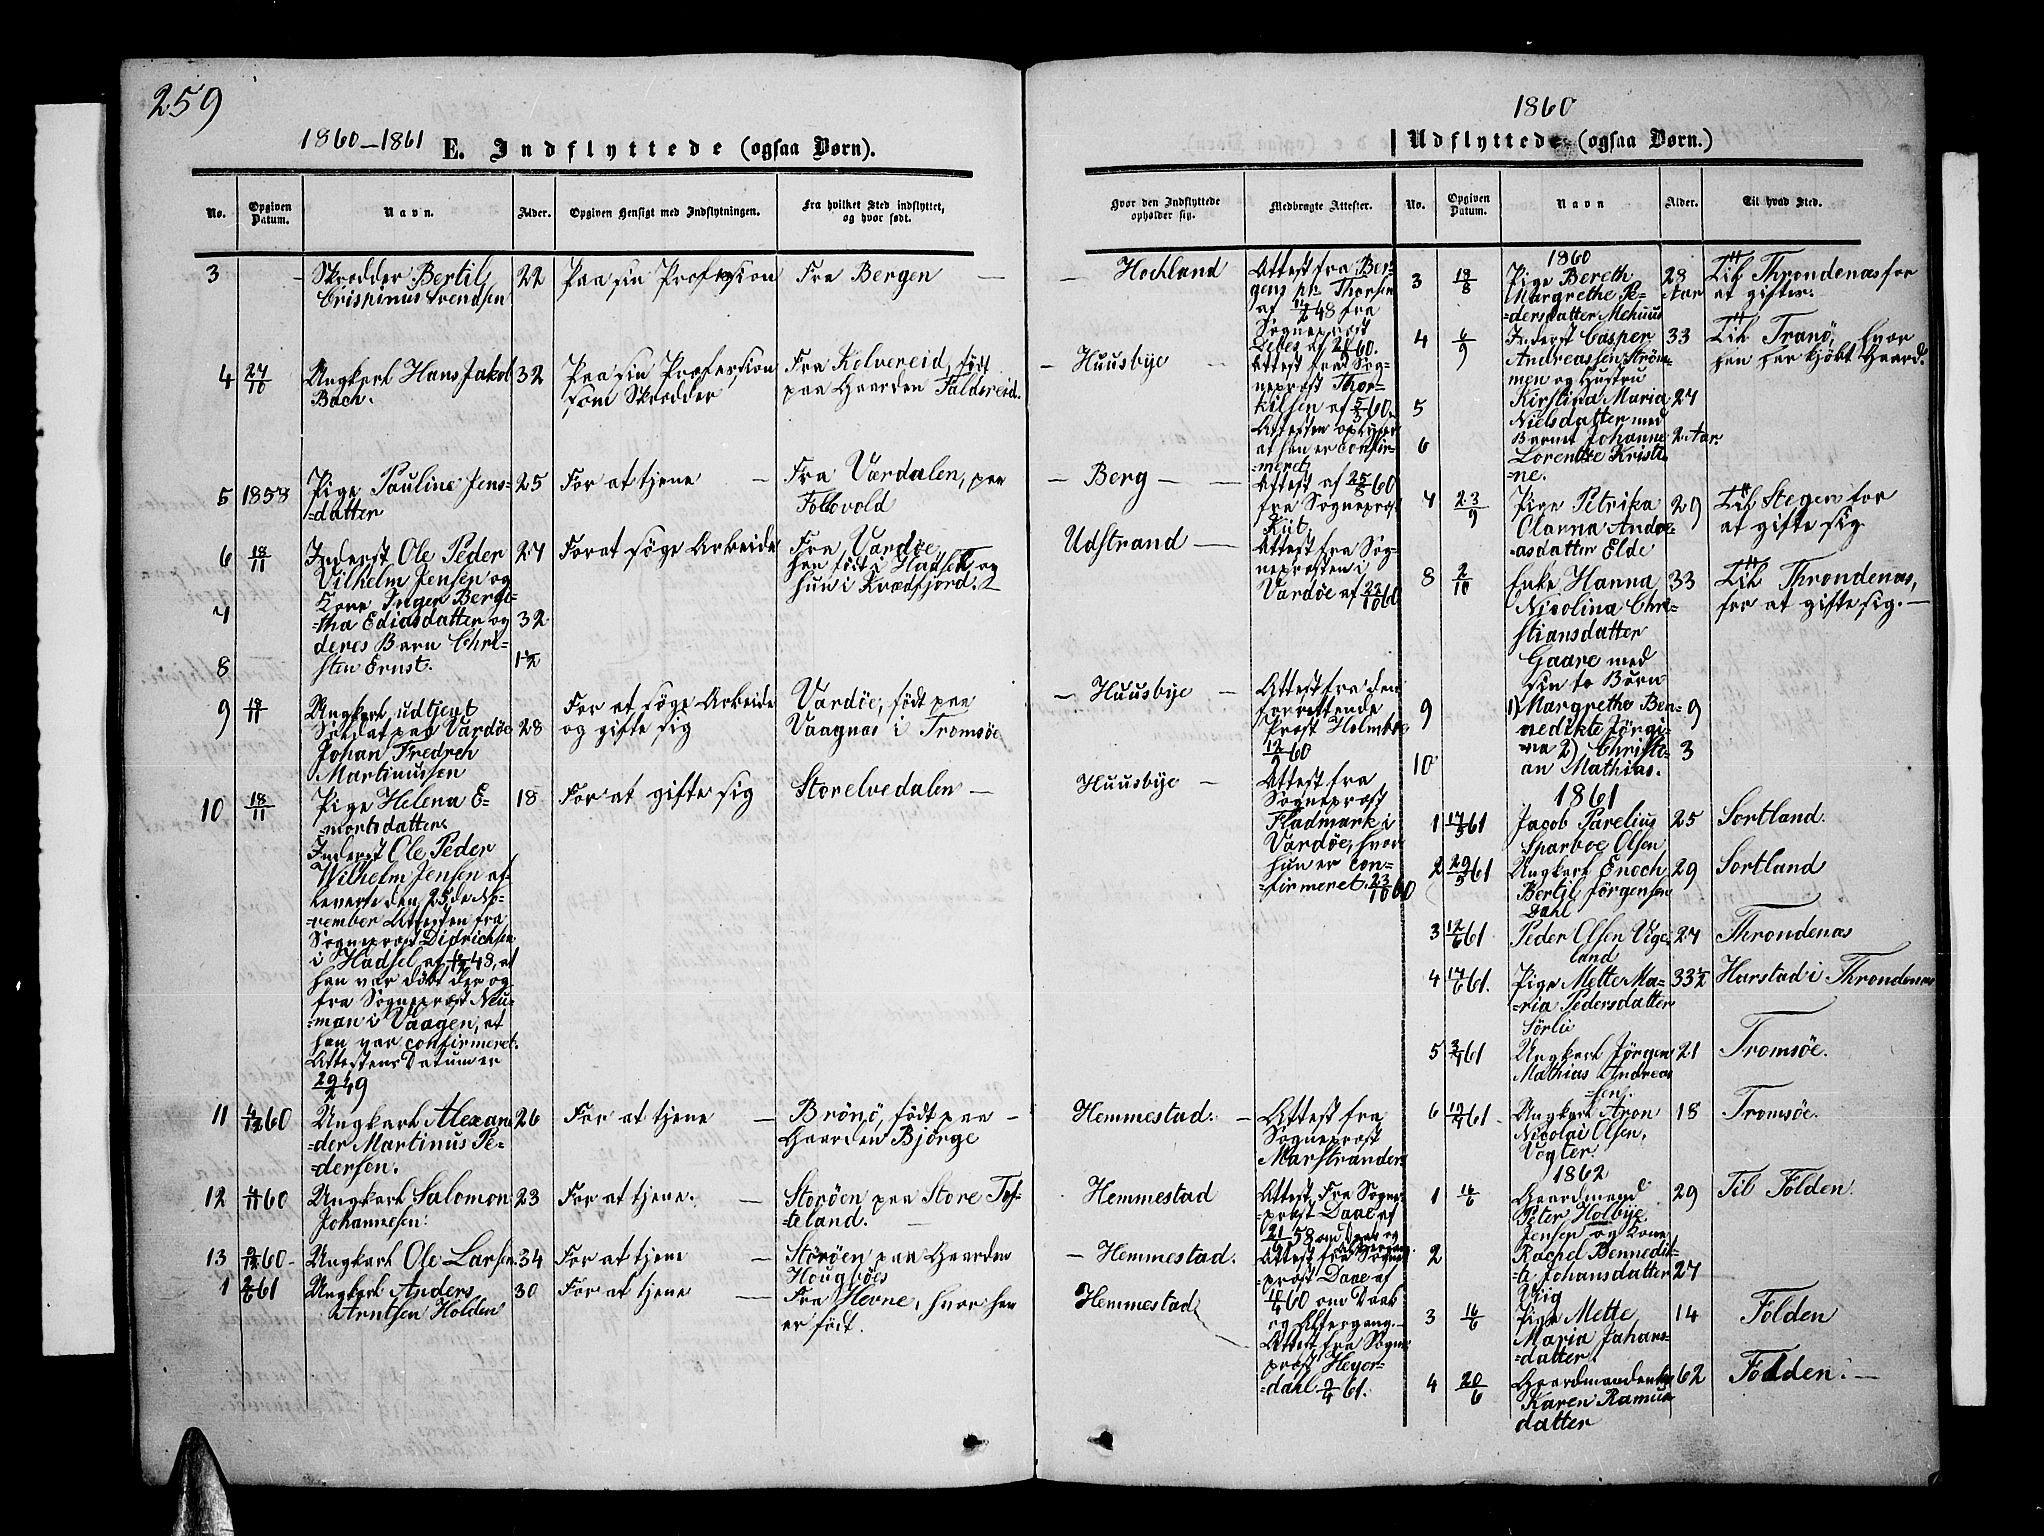 259
1860–1861
E. Indflyttede (ogsaa Børn).
No.
Opgiven Datum.
Navn.
Alder.
Opgiven Hensigt med Indflytningen.
Fra hvilket Sted indflyttet, og hvor født.
Hvor den Indflyttede opholder sig.
Medbragte Attester.
3
Skrædder Bertil
Crispinus Svendsen
22
Paa sin Profession
Fra Bergen
Hochland
Attest fra Ber-
gens
Thorsen
Sogneprost
4 27/10
Ungkarl Hans Jakob
Bach.
32
Paa sin Profession
som Skrædder
Fra Kolvereid, født
paa Gaarden Faldereid.
Huusbye
Attest fra Sog-
neprost Thor-
kilsen af 5/3 60.
Attesten oplyser
at han er confir-
meret
5 1858
Pige Pauline Jens-
=datter
25
For at tjene
Fra Værdalen, paa
Follovold
Berg
Attest af 25/8 60
fra Sogneprost
6 18/11
Inderst Ole Peder
Vilhelm Jensen og
27
For at søge Arbeide
Fra Vardøe,
han født i Hadsel og
hun i Kvædfjord.
Udstrand
Attest fra Sog-
neprosten i
Vardøe af 22/10 60
7
Kone Inger Berge-
=tha Ediasdatter og
32
8
deres Barn Chri-
sten Ernst.
1½
9 18/11
Ungkarl, udtjent
Soldat paa Vardøe
Johan Fredrch
Martinussen
28
For at søge Arbeide
og gifte sig
Vardøe, født paa
Vaagnæs i Tromsøe
Huusbye
Attest fra den
forrettende
Prost Holmboe
12/9 60
10 18/11
Pige Helena E-
=mortsdatter
18
For at gifte sig
Storelvedalen
Huusbye
Attest fra
Sogneprost
Fladmark i
Vardøe, hvor
hun er con-
=firmeret 23/10 60
Inderst Ole Peder
Wilhelm Jensen af-
leverte den 25de No-
=vember Attesten fra
Sogneprost Didrichsen
i Hadsel af 48, at
han var døbt der og
fra Sogneprost Neu-
=man i Vaagen, at
han var confirmeret.
Attestens Datum er
29/2 49
11 4/12 60
Ungkarl Alexan-
=der Martinus Pe-
dersen.
26
For at tjene
Brønø, født paa
Gaarden Bjørge
Hemmestad.
Attest fra
Sogneprost
Marstrander
12 4/11 60
Ungkarl Salomon
Johannesen.
23
For at tjene.
Storøen paa Store Tof-
=teland.
Hemmestad
Attest Fra Sogne-
=prost Daae af
58 om Daab og
Altergang
13 60
Ungkarl Ole Larsen
34
For at tjene
Storøen paa Gaarden
Hougboes
Hemmestad.
Attest fra Sogne-
=prost Daae af
60 om Daab
og Altergang.
1 2/6 61
Ungkarl Anders
Arntsen Holden
30
For at tjene
Fra Hevne, hvor han
er født.
Hemmestad
Attest fra Sogne-
prost Heyer-
=dahl 61.
1860
Udflyttede (ogsaa Børn.)
No.
Opgiven Datum.
Navn
Alder.
Til hvad Sted.
1860
3 18/8
Pige Bereth
Margrethe Pe-
=dersdatter Mehuus
28 Aar
Til Throndenæs for
at gifte.
4 6/9
Inderst Casper
Andreassen Strøm-
men og Hustru
33
Til Tranø, hvor
han har kjøbt Gaard.
5
Kirstina Maria
Nielsdatter med
27
6
Barnet Johanne
Lorentze Kristi-
=ne.
2 Aar
7 23/9
Pige Petrika
Olanna Andre-
=asdatter Elde
29
Til Stegen for
at gifte sig
8 2/10
Enke Hanna
Nicolina Chri-
stiansdatter
Gaare med
sin to Børn
33
Til Throndenæs,
for at gifte sig.
9
1) Margrethe Ben-
nedikte Jørgi-
=na 2) Christi-
an Mathias.
9
10
3
1861
1 17/5 61
Jacob Parelius
Sparboe Olsen
25
Sortland.
2 29/5 61
Ungkarl Enoch
Bertil Jørgensen
Dahl
29
Sortland
3 12/6 61
Peder Olsen Vige-
land
27
Throndenæs
4 17/6 61.
Pige Mette Ma-
=ria Pedersdatter
Sørlie
33½
Harstad i Throndenæs
5 3/7 61
Ungkarl Jørgen
Mathias Andreas-
=sen.
21
Tromsøe.
6 61
Ungkarl Aron
Nicolai Olsen.
Vogter.
18
Tromsøe.
1862
1 16/6
Gaardmand
Peter Holbye
Jensen og Kone
29
Til Folden.
2
Rachel Bennedik-
ta Johansdatter
Viig
27
3 16/6
Pige Mette
Maria Johans-
=datter.
14
Folden
4 20/6
Gaardmandenke
Karen Rasmus-
datter
62
Folden.